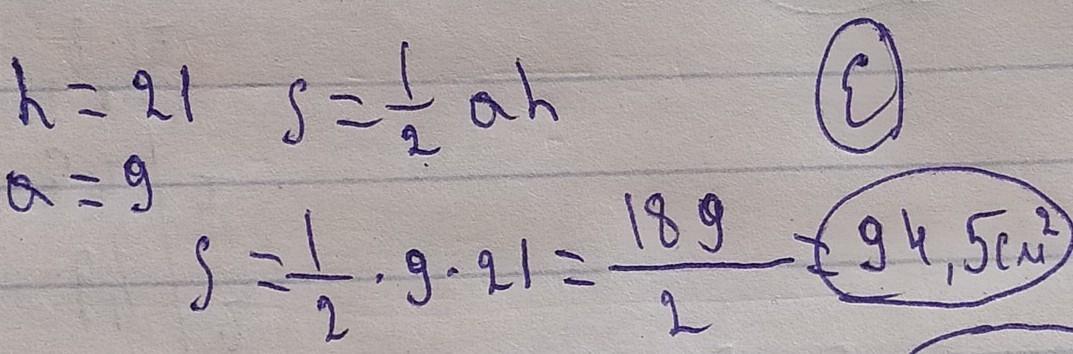 h = 21 S = 1/2 ah E
a = 9
S = 1/2 · 9 · 21 = 189/2 = 94,5 см²